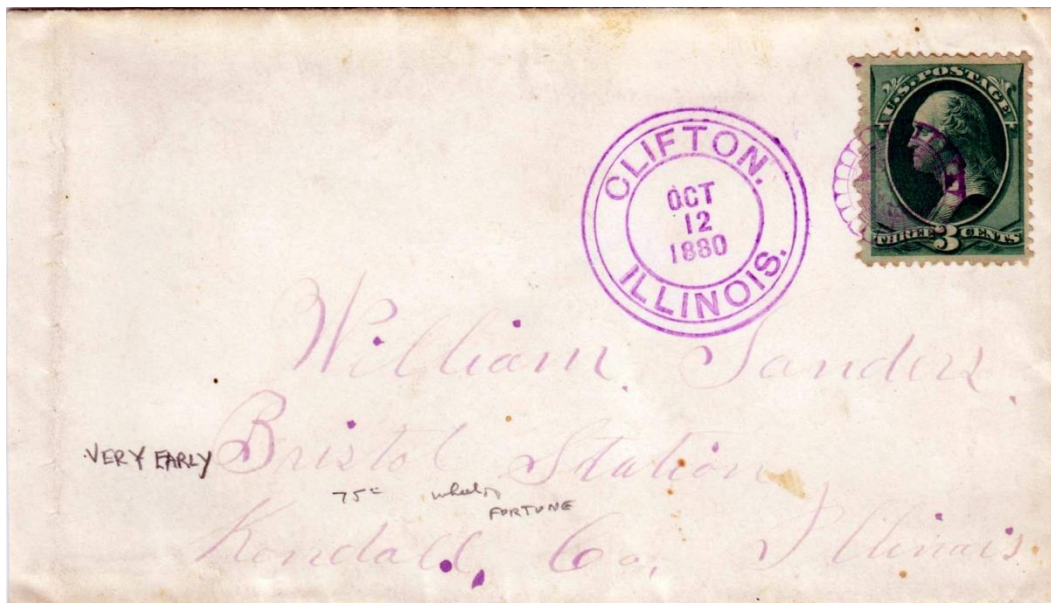 U.S. POSTAGE
THREE 3 CENTS
CLIFTON.
OCT
12
1880
ILLINOIS.
William Sanders
VERY EARLY
Bristol Station,
75¢ wheel of
FORTUNE
Kendall, Co, Illinois.